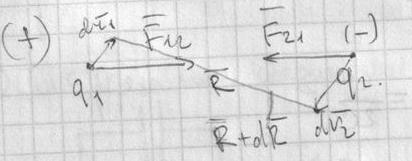 (+) dr̅₁ F̅₁₂ F̅₂₁ (-)
q₁ R̅ q₂.
R̅+dR̅ dr̅₂